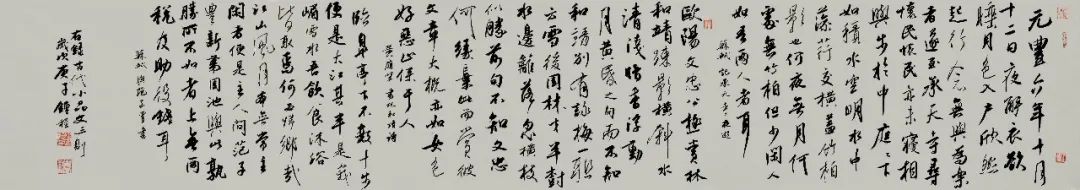 元豐六年十月
十二日夜解衣欲
睡月色入戶欣然
起行念無與為樂
者遂至承天寺尋
懷民懷民亦未寢相
與步於中庭庭下
如積水空明水中
藻荇交橫蓋竹柏
影也何夜無月何
處無竹柏但少閑人
如吾兩人者耳
蘇軾記承天寺夜遊
歐陽文忠公極賞林
和靖疎影橫斜水
清淺暗香浮動
月黃昏之句而不知
和靖別有詠梅一聯
云雪後園林才半樹
水邊籬落忽橫枝
似勝前句不知文忠
何緣棄此而賞彼
文章大概亦如女色
好惡止係于人
黃庭堅書林和靖詩
臨皋亭下不數十步
便是大江其半是峨
嵋雪水吾飲食沐浴
皆取焉何必歸鄉哉
江山風月本無常主
閑者便是主人問范子
豐新第園池與此孰
勝所不如者上無兩
稅及助役錢耳
蘇軾與范子豐書
右錄古代小品文三則
歲次庚子